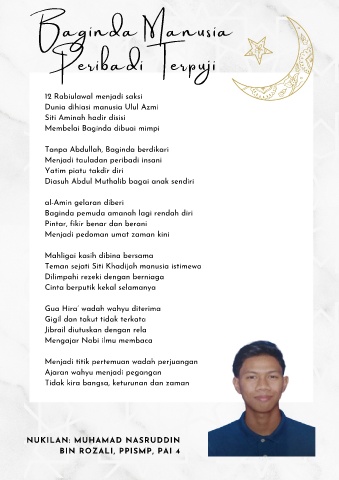 Baginda Manusia
Peribadi Terpuji
12 Rabiulawal menjadi saksi
Dunia dihiasi manusia Ulul Azmi
Siti Aminah hadir disisi
Membelai Baginda dibuai mimpi
Tanpa Abdullah, Baginda berdikari
Menjadi tauladan peribadi insani
Yatim piatu takdir diri
Diasuh Abdul Muthalib bagai anak sendiri
al-Amin gelaran diberi
Baginda pemuda amanah lagi rendah diri
Pintar, fikir benar dan berani
Menjadi pedoman umat zaman kini
Mahligai kasih dibina bersama
Teman sejati Siti Khadijah manusia istimewa
Dilimpahi rezeki dengan berniaga
Cinta berputik kekal selamanya
Gua Hira' wadah wahyu diterima
Gigil dan takut tidak terkata
Jibrail diutuskan dengan rela
Mengajar Nabi ilmu membaca
Menjadi titik pertemuan wadah perjuangan
Ajaran wahyu menjadi pegangan
Tidak kira bangsa, keturunan dan zaman
NUKILAN: MUHAMAD NASRUDDIN
BIN ROZALI, PPISMP, PAI 4